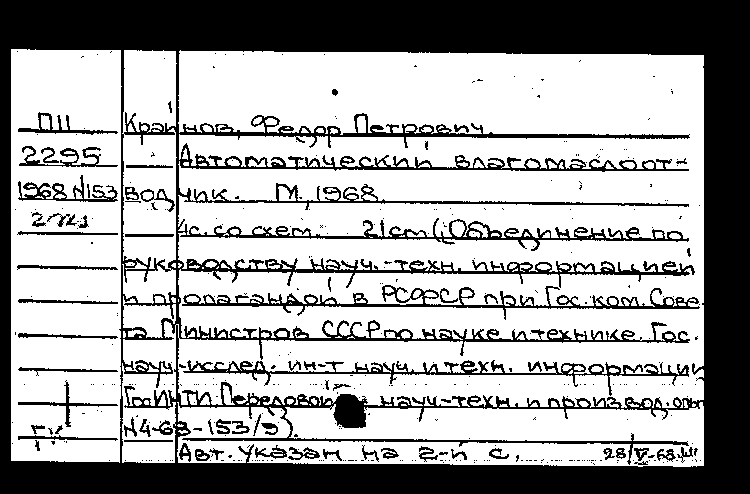 П11 Крайнов, Федор Петрович.
2295 Автоматический влагомаслоот-
1968 N153 водчик. М., 1968.
4с. со схем. 21cm (Объединение по
руководству науч.-техн. информацией
и пропагандой в РСФСР при Гос. ком. Сове-
та Министров СССР по науке и технике. Гос.
науч.-исслед. ин-т науч. и техн. информации
ГосИНТИ. Передовой науч.-техн. и производ. опыт
N4-68-153/9).
ГК
Авт. указан на 2-й с. 28/V-68